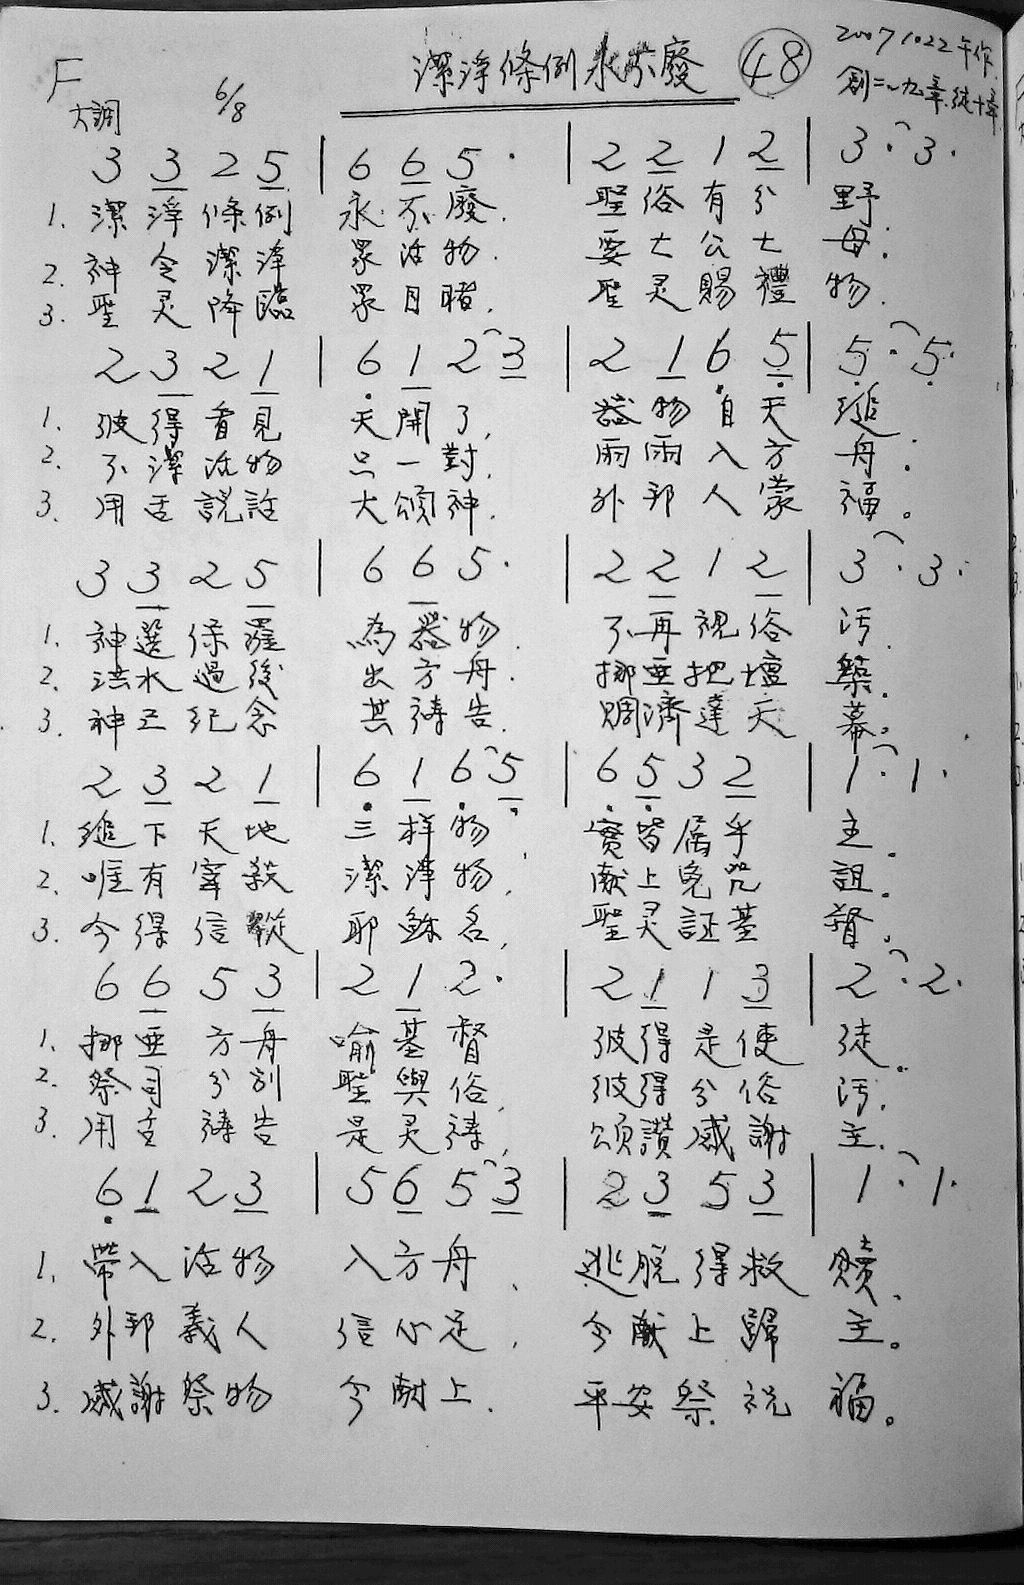 潔淨條例永不廢 48 20071022午作
F大調 6/8 創二~九章.徒十章
3 3 2 5 | 6 6 5 · | 2 2 1 2 | 3 · 3 ·
1. 潔淨條例 永不廢. 聖俗有分 野
2. 神令潔淨 眾活物. 要七公七 母.
3. 聖灵降臨 眾目睹. 聖灵賜禮 物.
2 3 2 1 | 6 1 2 3 | 2 1 6 5 | 5 · 5 ·
1. 彼得看見 天開了, 器物自天 縋.
2. 不潔活物 只一對. 兩兩入方 舟.
3. 用舌説話 大頌神. 外邦人蒙 福。
3 3 2 5 | 6 6 5 · | 2 2 1 2 | 3 · 3 ·
1. 神選保羅 為器物. 不再視俗 污.
2. 洪水過後 出方舟. 挪亜把壇 築.
3. 神正紀念 其禱告. 賙濟達天 幕.
2 3 2 1 | 6 1 6 5 | 6 5 3 2 | 1 · 1 ·
1. 縋下天地 三樣物 實皆属乎 主.
2. 唯有宰殺 潔淨物, 献上免咒 詛.
3. 今得信從 耶穌名, 聖灵証基 督.
6 6 5 3 | 2 1 2 · | 2 1 1 3 | 2 · 2 ·
1. 挪亜方舟 喻基督 彼得是使 徒.
2. 祭司分别 聖與俗, 彼得分俗 污.
3. 用舌禱告 是灵禱, 頌讚感謝 主.
6 1 2 3 | 5 6 5 3 | 2 3 5 3 | 1 · 1 ·
1. 帶入活物 入方舟、 逃脱得救 贖.
2. 外邦義人 信心足, 今献上歸 主。
3. 感謝祭物 今献上. 平安祭祝 福。